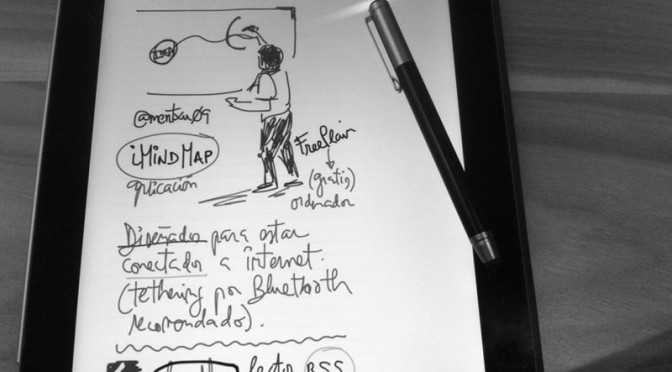 @mentxu09
iMINDMAP
aplicación
FreePlain
(gratis)
ordenador
Diseñados para estar
conectados a internet.
(tethering por Bluetooth
recomendado).
RSS